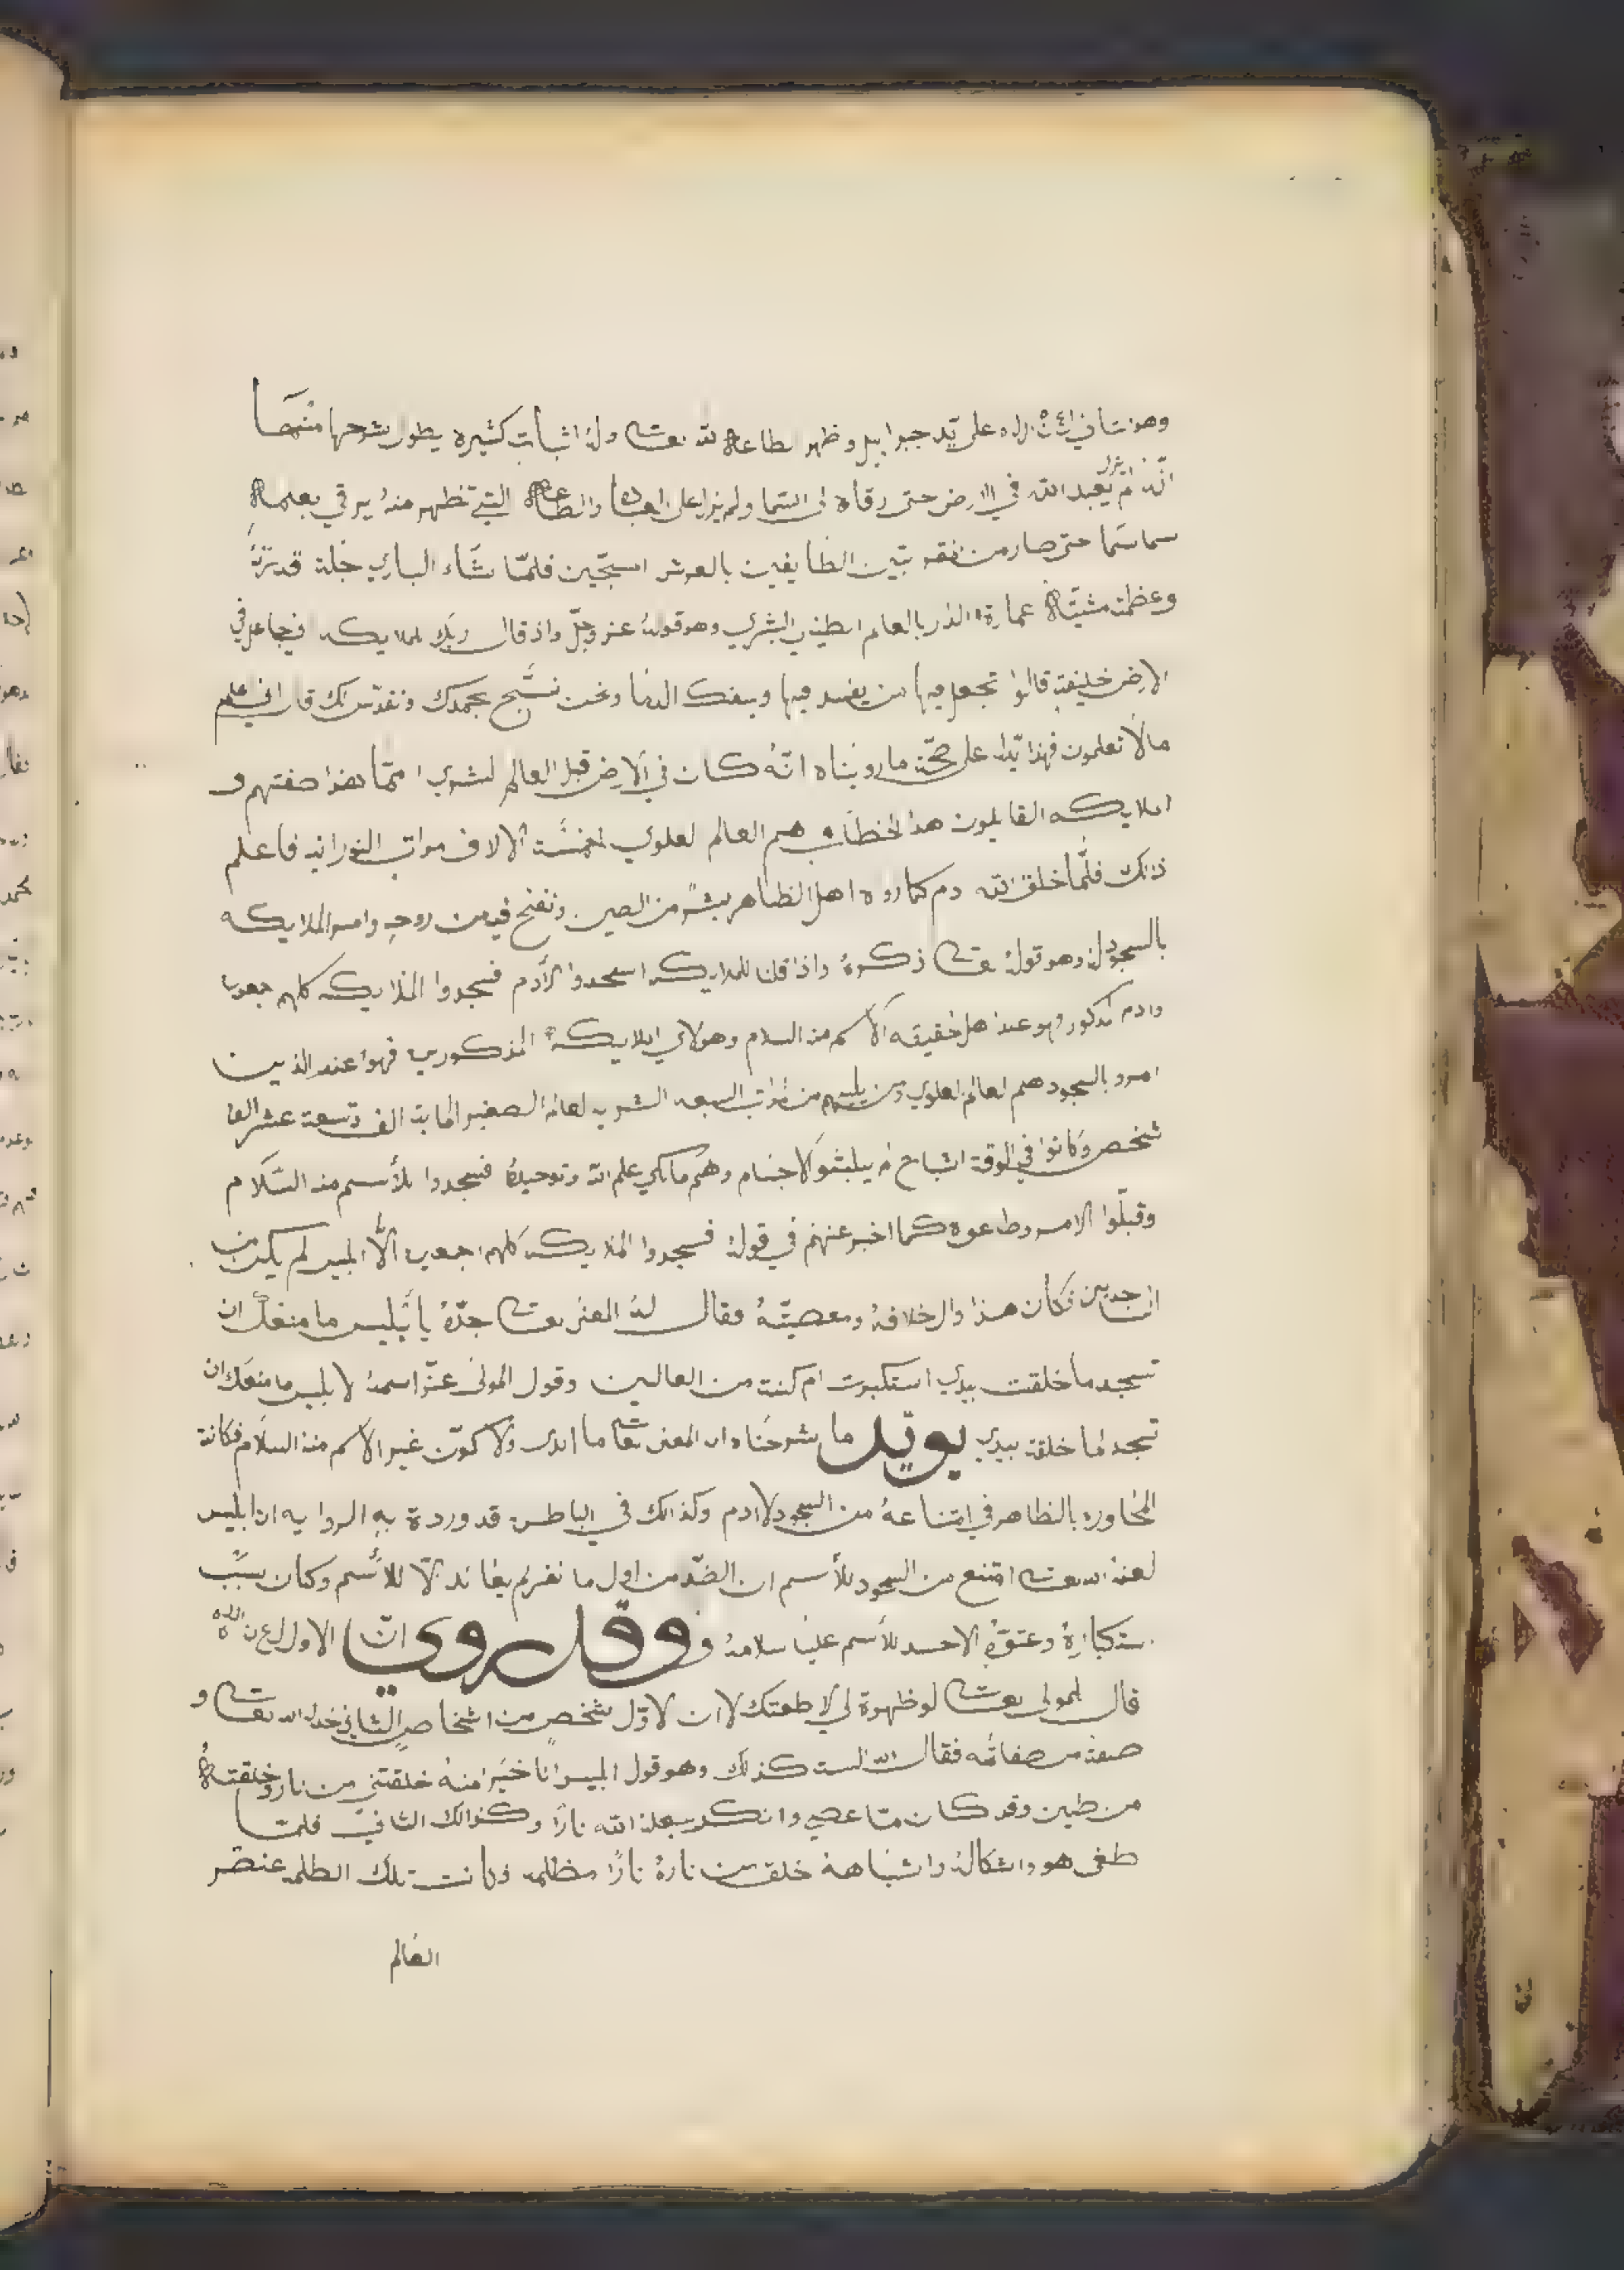 على يد جبراييل وظهر بطاعة لله وله اثبات كثيره يطول شرحها منها
يعبد الله في الارض حتى رقاه الى السما ولم يزل على والطاعة التي تظهر منه يرقي بعلمه
سما سما حتى صار من الطايفين بالعرش فلمّا شاء الباري جلة قدرته
وعظمت مشيّته عمارة بالعالم البشري وهو قوله عز وجلّ واذ قال ربك للملايكه اني جاعل في
الارض خليفة قالوا تجعل فيها من يفسد فيها ويسفك الدما ونحن نسّبح بحمدك ونقدّس لك قال اني اعلم
مالا تعلمون فهذا يّدل على صحّة ما رويناه انّه كان في الارض قبل العالم البشري امماً هذا صفتهم و
الملايكه القايلون هذا الخطاب هم العالم العلوي الخمسة الالاف مراتب النورانيه فاعلم
ذالك فلّما خلق الله دم كما روه اهل الظاهر بشرً من ونفخ فيه من روحه وامر الملايكه
بالسجود له وهو قوله ذكره واذا قلنا للملايكه اسجدوا لأدم فسجدوا الملايكه كلهم
وادم المذكور وهو عند حقيقه الأسم منه السلام وهولاي الملايكة المذكورين فهوا عند الذين
امرو بالسجود هم العالم العلوي ومن يليهم من مراتب السبعه العالم الصغير الماية الف وتسعة عشر الفا
شخص وكانوا في الوقة اشباح لم يلبثو الاجسام وهم مالكي علم الله وتوحيده فسجدوا للأسم منه السّلام
وقبّلوا الامر وطاعوه كما اخبر عنهم في قوله فسجدوا الملايكه كلهم اجمعين الّا ابليس لم يكن من
الساجدين فكان هذا اول خلافه ومعصيّته فقال له المعنى جدّه يا ابليس ما منعك ان
تسجد ما خلقت بيدي استكبرت ام كنت من العالين وقول المولى عزّ اسمه لابليس ما منعك ان
تسجد لما خلقة بيدي يويّد ما شرحنا وان المعنى ما ابدى ولا كوّن غير الاسم منه السلام فكانة
المخاوره بالظاهر في امتناعهُ من السجود لادم وكذالك في الباطن قد وردة به الروايه ان ابليس
لعنه الله امتنع من السجود للأسم ان الضّد من اول ما نفر لم يعاند الّا للأسم وكان سبب
ستكبارهِ وعتوّهِ الاحسد للأسم علينا سلامهُ وقد روي انّ الاول لعن الله
قال للمولى لو ظهرة لي لاطعتك لان لاوّل شخص من اشخاص الثاني و
صفة من صفاته فقال كذلك وهو قول ابليس انا خيرًا منه خلقتني من نار وخلقته
من طين وقد كان وانكر الله نارًا وكذالك الثاني فلمّا
طغى هو واشكاله واشباهه خلق من ناره نارًا مظلمه وكانت تلك الظلمه عنصر
العالم